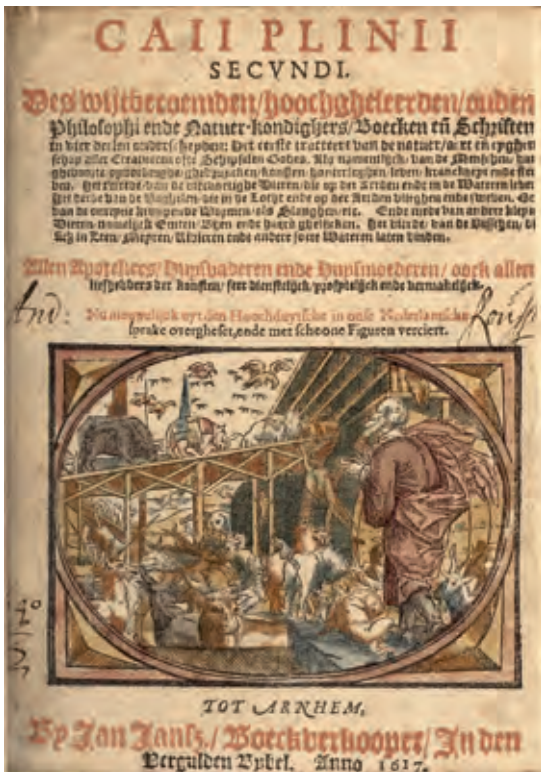 CAII PLINII
SECVNDI.
Des wijtberoemden/hoochgheleerden/ouden
Philosophi ende Natuer-kondighers/Boecken eñ Schriften
in vier deelen onderscheyden: Het eerste tracteert van de natuer/aert en eyghen
schap aller Creatueren ofte Schepselen Godes. Als namentlijck/van de Menschen/
leven/kranckheyt ende
Het tweede/van de viervoetighe Dieren/die op der Eerden ende in de Wateren leven
Het derde van de Voghelen/die in de Locht ende op der Aerden vlieghen ende sweven.
van de cruypende Wormen/als Slanghen/etc. Ende mede van andere kleyne
Dieren/namelijck Emten/Byen ende haers ghelijcken. Het vierde/van de Visschen/
sich in Zeen/Meyren/Rivieren ende andere soete Wateren laten vinden.
Allen Apotekers/Huyshaderen ende Huysmoederen/oock allen
liefhebbers der konsten/seer dienstelijck/profytelijck ende vermakelijck.
And:
Nu nieuwelijck uyt den Hoochduytsche in onse Nederlantsche
sprake overgheset, ende met schoone Figuren verciert.
TOT ARNHEM,
By Jan Jansz./Boeckverkooper/In den
Vergulden Bybel. Anno 1617.